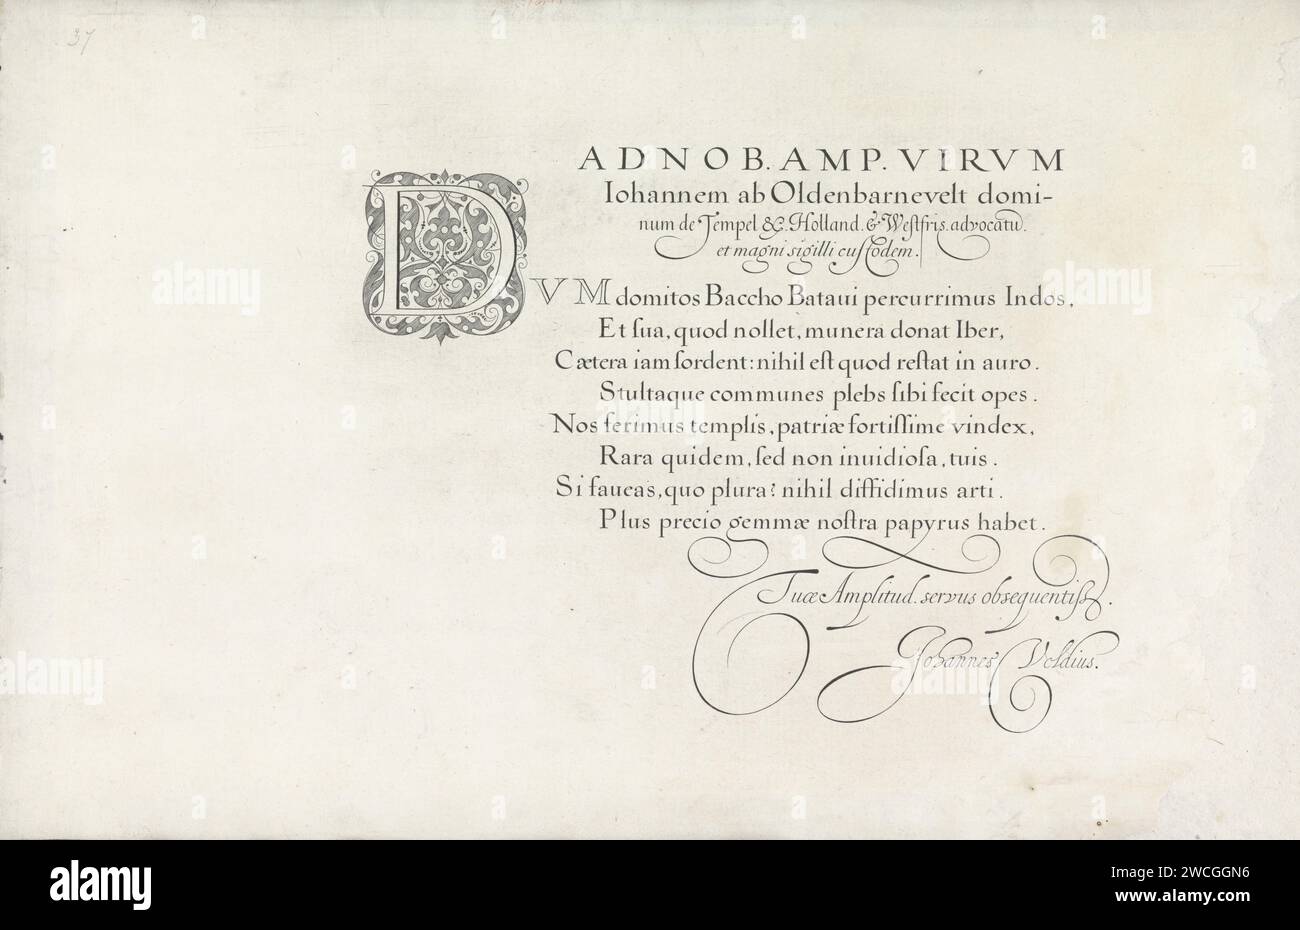 37
AD NOB. AMP. VIRVM
Iohannem ab Oldenbarnevelt domi-
num de Tempel &c. Holland. & Westfris. advocatū.
et magni sigilli custodem.
DVM domitos Baccho Bataui percurrimus Indos,
Et ſua, quod nollet, munera donat Iber,
Cætera iam ſordent: nihil eſt quod reſtat in auro.
Stultaque communes plebs ſibi fecit opes.
Nos ferimus templis, patriæ fortiſſime vindex,
Rara quidem, ſed non inuidioſa, tuis.
Si faueas, quo plura? nihil diffidimus arti.
Plus precio gemmæ noſtra papyrus habet.
Tuæ Amplitud. servus obsequentiſſ.
Johannes Veldius.
alamy
Image ID: 2WCGGN6
www.alamy.com